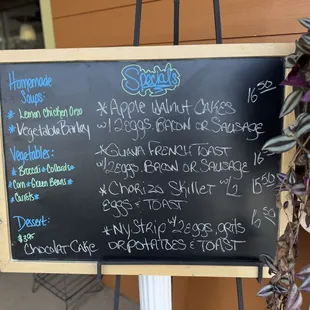 Specials
Homemade
Soups:
* Lemon Chicken Orzo
* Vegetable Barley
Vegetables:
* Broccoli * Collards *
* Corn * Green Beans *
* Carrots *
Dessert:
* 3.95
Chocolat Cake
* Apple Walnut Cakes 16.50
w/2 eggs. Bacon or Sausage
* Guava French Toast 16.50
w/2 eggs. Bacon or Sausage
* Chariza Skillet w/2 15.50
eggs & Toast
* NY Strip w/2 eggs, grits
or potatoes & toast